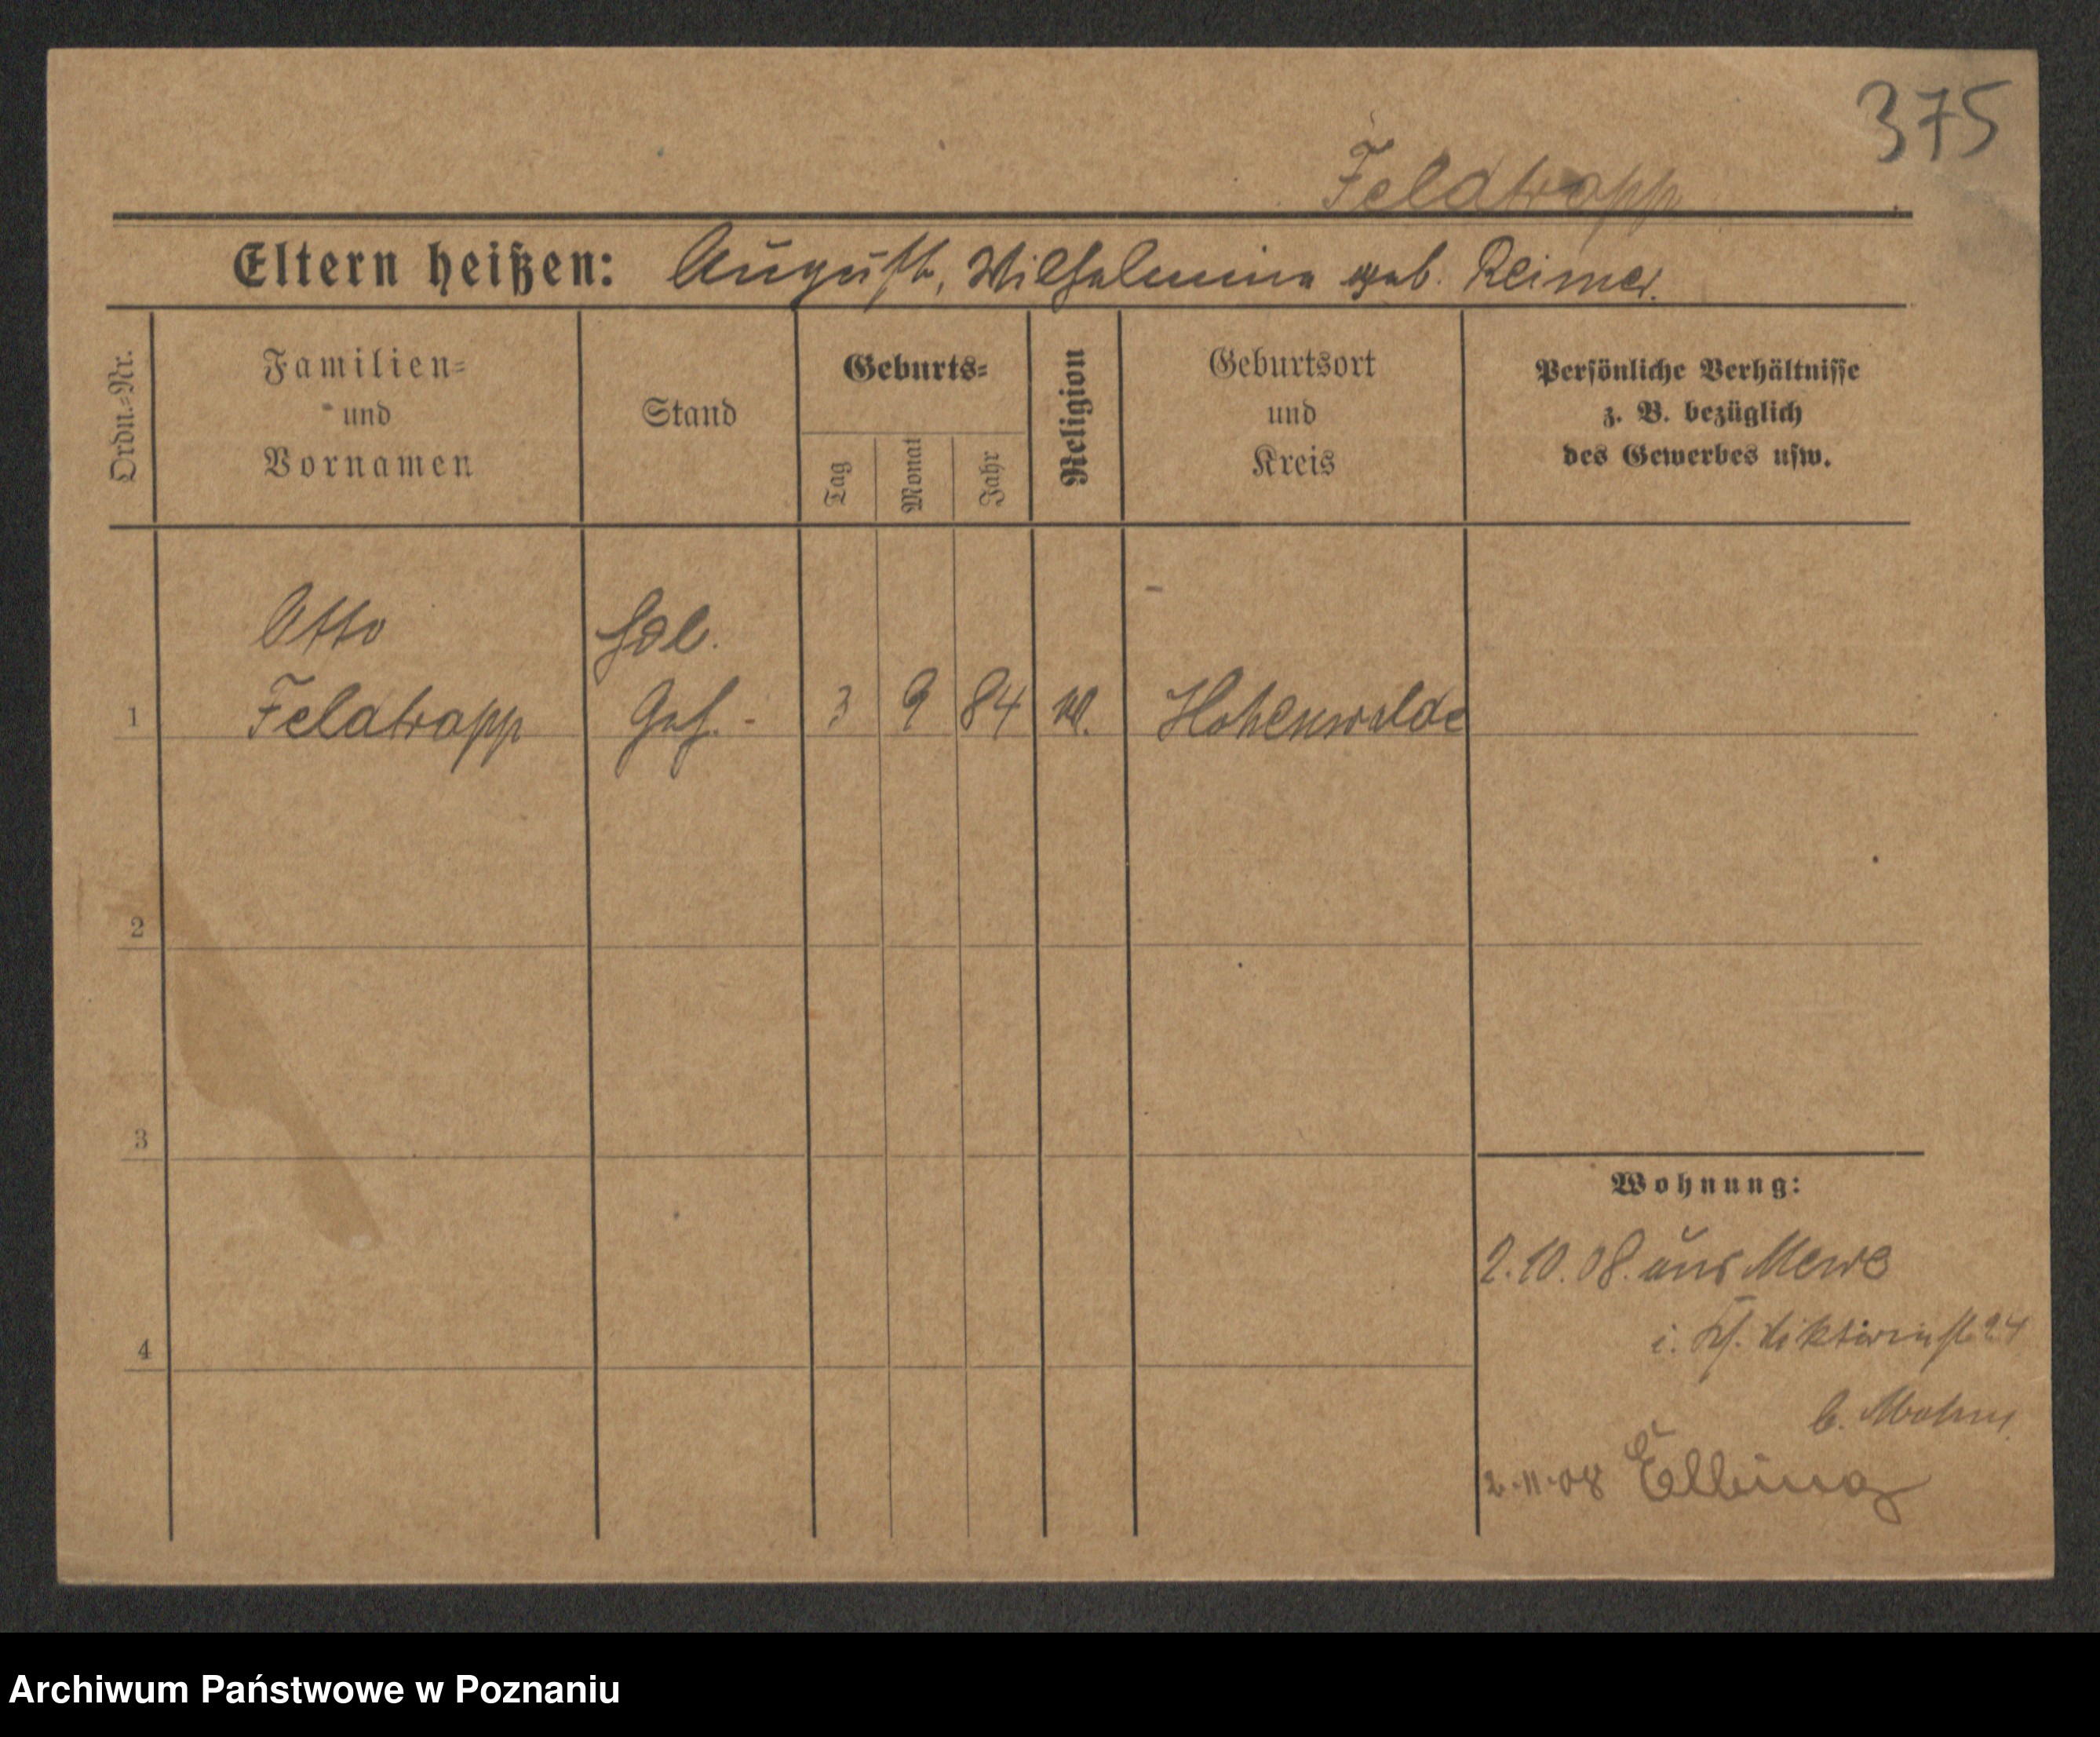 375
Feldtrapp
Eltern heißen: August, Wilhelmine geb. Reimer.
Ordn.-Nr.
Familien-
und
Vornamen
Stand
Geburts-
Tag
Monat
Jahr
Religion
Geburtsort
und
Kreis
Persönliche Verhältnisse
z. B. bezüglich
des Gewerbes usw.
Otto
1 Feldtrapp 3 9 84 Hohenwalde
2
3
4
Wohnung:
2.10.08. aus Mewe
i. Viktoriastr 24
b.
2.11.08 Elbing
Archiwum Państwowe w Poznaniu